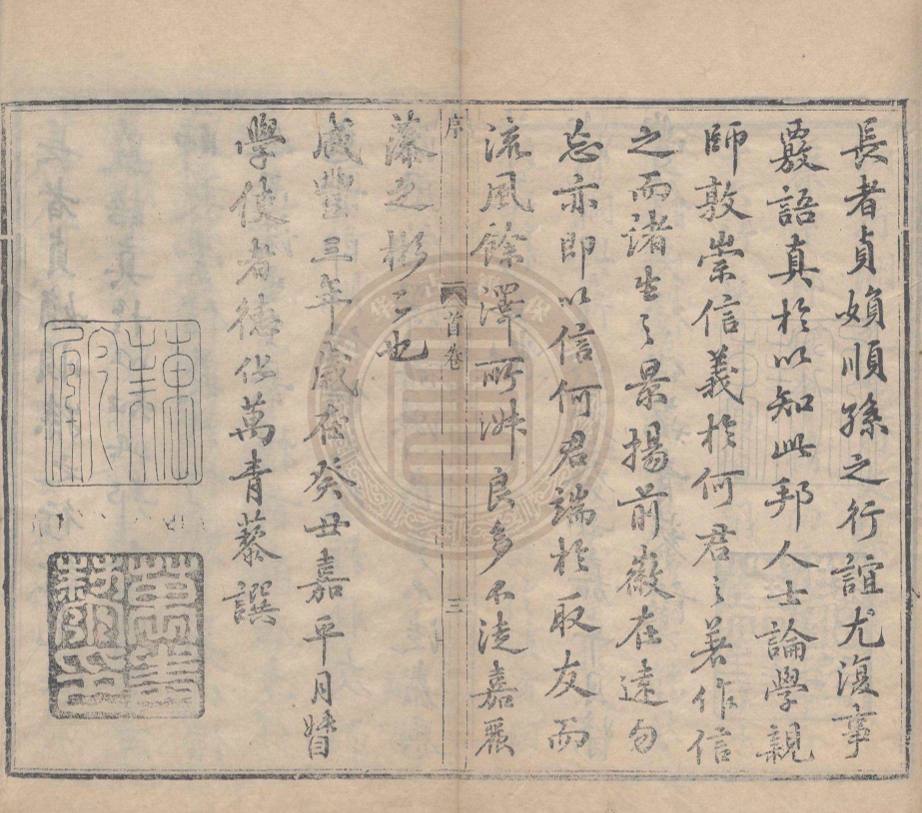 長者貞媍順孫之行誼尤復事
覈語真於以知此邦人士論學親
師敦崇信義於何君之著作信
之而諸生之景揚前徽在遠勿
忘亦即以信何君端於取友而
流風餘澤所淑良多不徒嘉麗
藻之彬〻也
序
首卷
三
咸豐三年歲在癸丑嘉平月督
學使者德化萬青藜譔